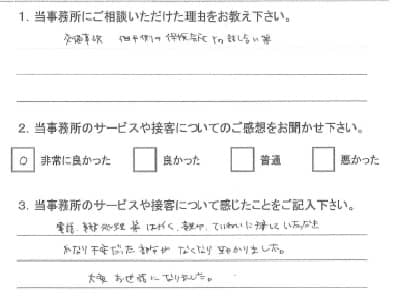 1. 当事務所にご相談いただけた理由をお教え下さい。
交通事故 相手側の保険会社との話し合い等
2. 当事務所のサービスや接客についてのご感想をお聞かせ下さい。
○ 非常に良かった 良かった 普通 悪かった
3. 当事務所のサービスや接客について感じたことをご記入下さい。
電話、事務処理等はやく、親切、ていねいに接していただき
かなり不安だった部分がなくなり助かりました。
大変お世話になりました。